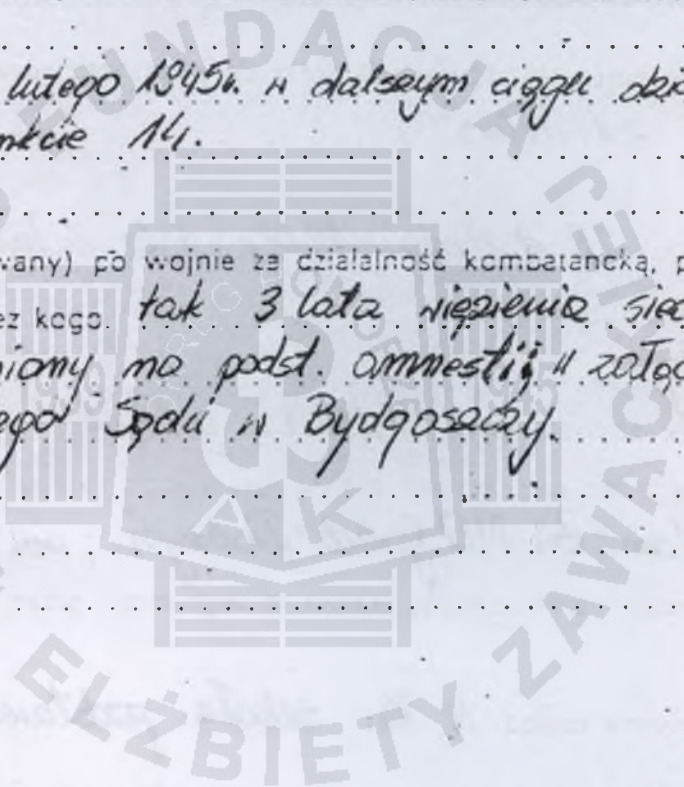 lutego 1945r. w dalszym ciągu dzi
nkcie 14.
wany) po wojnie za działalność kombatancką, p
ez kogo. tak 3 lata więzienia sie
niony na podst. amnestii w załą
ego Sądu w Bydgoszczy.
FUNDACJA
ELŻBIETY ZAWACKIEJ
OKRĘG POMORZE
1939 1945
AK